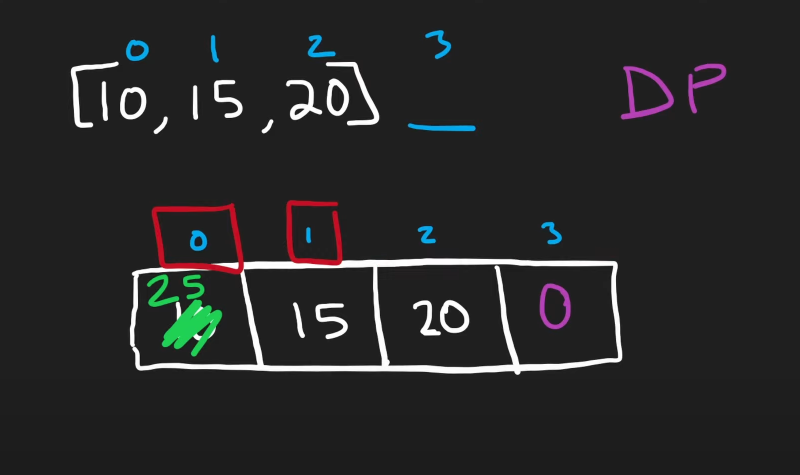 0 1 2 3
[10, 15, 20] DP
0 1 2 3
25
15 20 0